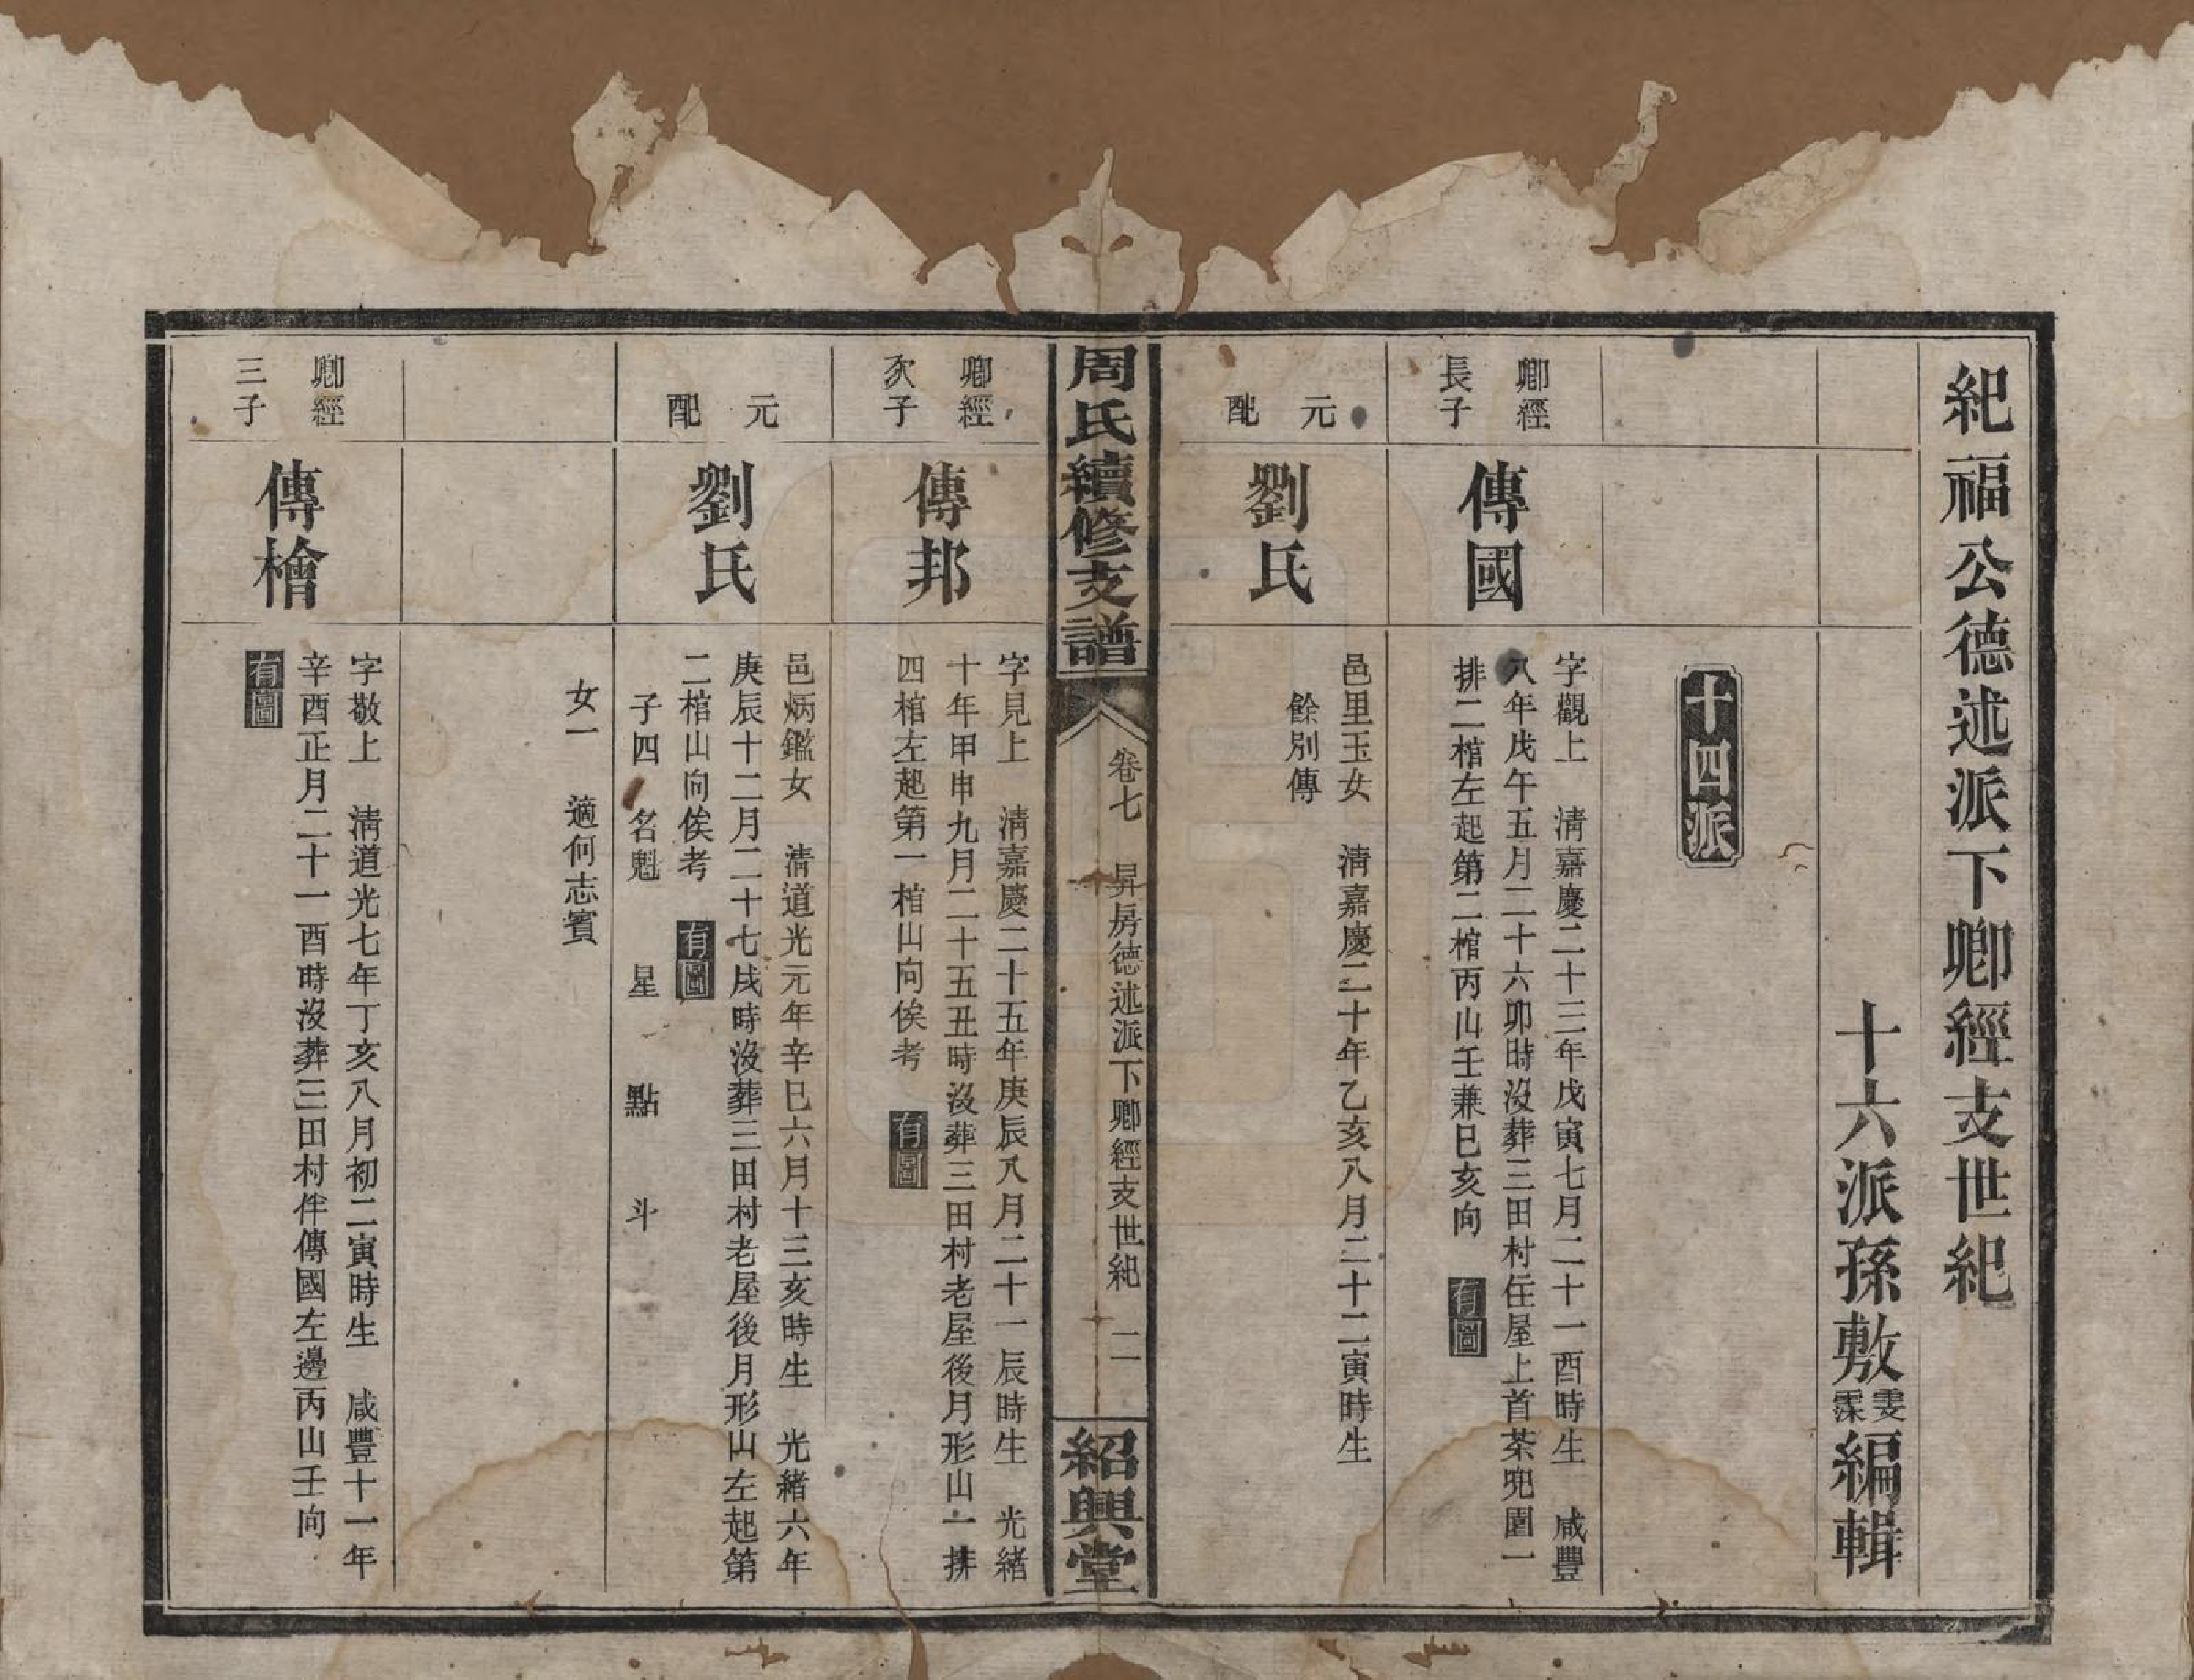 紀福公德述派下卿經支世紀
十六派孫敷雯霖編輯
十四派
卿經長子
傳國
字觀上 清嘉慶二十三年戊寅七月二十一酉時生 咸豐
八年戊午五月二十六卯時沒葬三田村住屋上首茶兜園一
排二棺左起第二棺丙山壬兼巳亥向 有圖
元配
劉氏
邑里玉女 清嘉慶二十年乙亥八月二十二寅時生
餘別傳
周氏續修支譜
卷七 昇房德述派下卿經支世紀 二
紹興堂
卿經次子
傳邦
字見上 清嘉慶二十五年庚辰八月二十一辰時生 光緒
十年甲申九月二十五丑時沒葬三田村老屋後月形山一排
四棺左起第一棺山向俟考 有圖
元配
劉氏
邑炳鑑女 清道光元年辛巳六月十三亥時生 光緒六年
庚辰十二月二十七戌時沒葬三田村老屋後月形山左起第
二棺山向俟考 有圖
子四 名魁 星 點 斗
女一 適何志賓
卿經三子
傳檜
字敬上 清道光七年丁亥八月初二寅時生 咸豐十一年
辛酉正月二十一酉時沒葬三田村伴傳國左邊丙山壬向
有圖